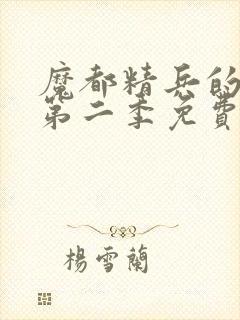 魔都精兵的
第二季免費
楊雪蘭